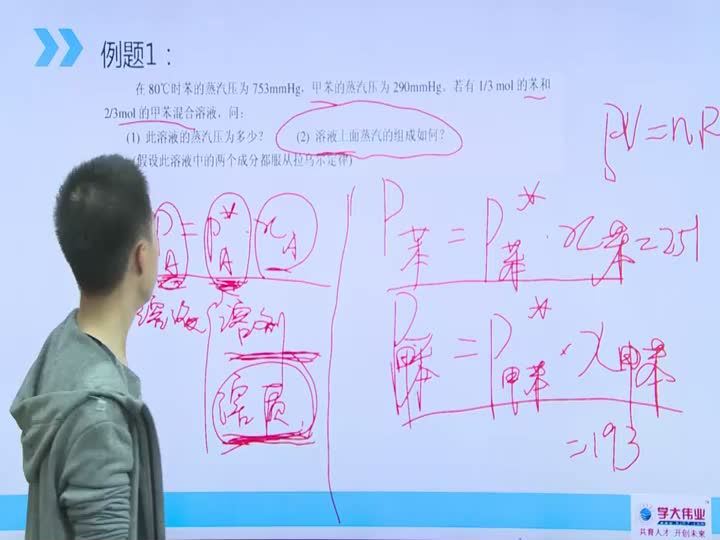 例题1：
在80℃时苯的蒸汽压为753mmHg，甲苯的蒸汽压为290mmHg。若有1/3 mol的苯和
2/3mol的甲苯混合溶液，问：
(1) 此溶液的蒸汽压为多少？ (2) 溶液上面蒸汽的组成如何？
(假设此溶液中的两个成分都服从拉乌尔定律)
PV=nR
P_A=P_A^*·x_A
P_苯=P_苯^*·x_苯=251
溶液 溶剂
P_甲苯=P_甲苯^*·x_甲苯
溶质
=193
学大伟业
共育人才 开创未来